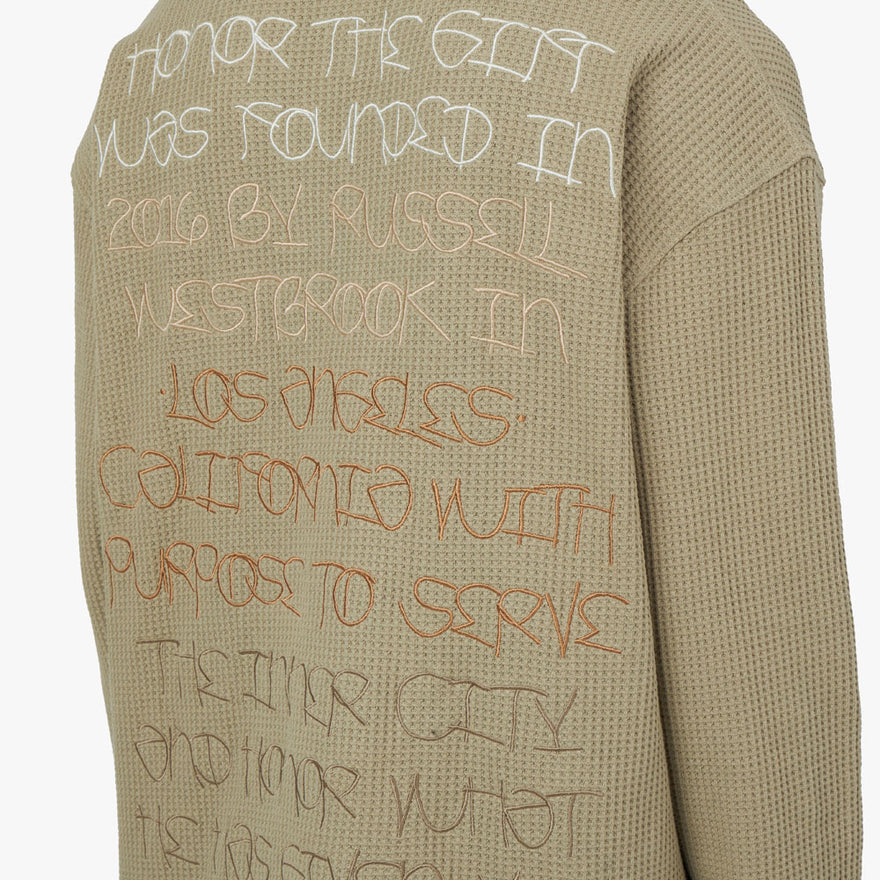 HONOR THE GIFT
WAS FOUNDED IN
2016 BY RUSSELL
WESTBROOK IN
·LOS ANGELES·
CALIFORNIA WITH
PURPOSE TO SERVE
THE INNER CITY
AND HONOR WHAT